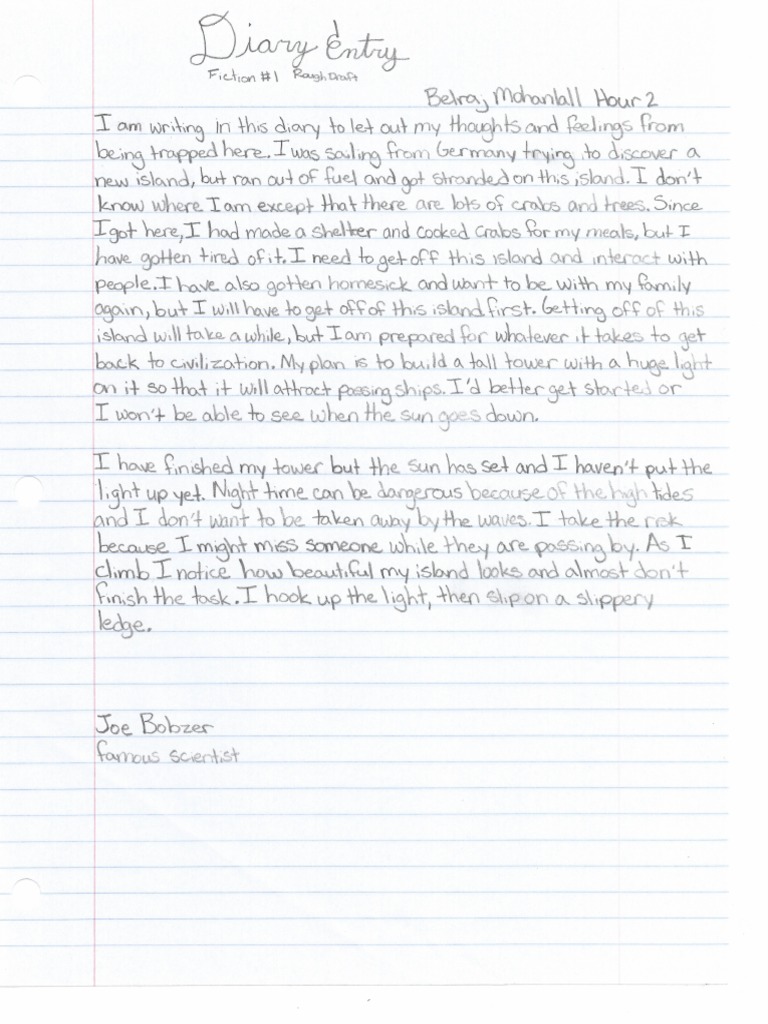 Diary Entry
Fiction #1 Rough Draft
Belraj Mohanlall Hour 2
I am writing in this diary to let out my thoughts and feelings from
being trapped here. I was sailing from Germany trying to discover a
new island, but ran out of fuel and got stranded on this island. I don't
know where I am except that there are lots of crabs and trees. Since
I got here, I had made a shelter and cooked crabs for my meals, but I
have gotten tired of it. I need to get off this island and interact with
people. I have also gotten homesick and want to be with my family
again, but I will have to get off of this island first. Getting off of this
island will take a while, but I am prepared for whatever it takes to get
back to civilization. My plan is to build a tall tower with a huge light
on it so that it will attract passing ships. I'd better get started or
I won't be able to see when the sun goes down.
I have finished my tower but the sun has set and I haven't put the
light up yet. Night time can be dangerous because of the high tides
and I don't want to be taken away by the waves. I take the risk
because I might miss someone while they are passing by. As I
climb I notice how beautiful my island looks and almost don't
finish the task. I hook up the light, then slip on a slippery
ledge.
Joe Bobzer
famous scientist